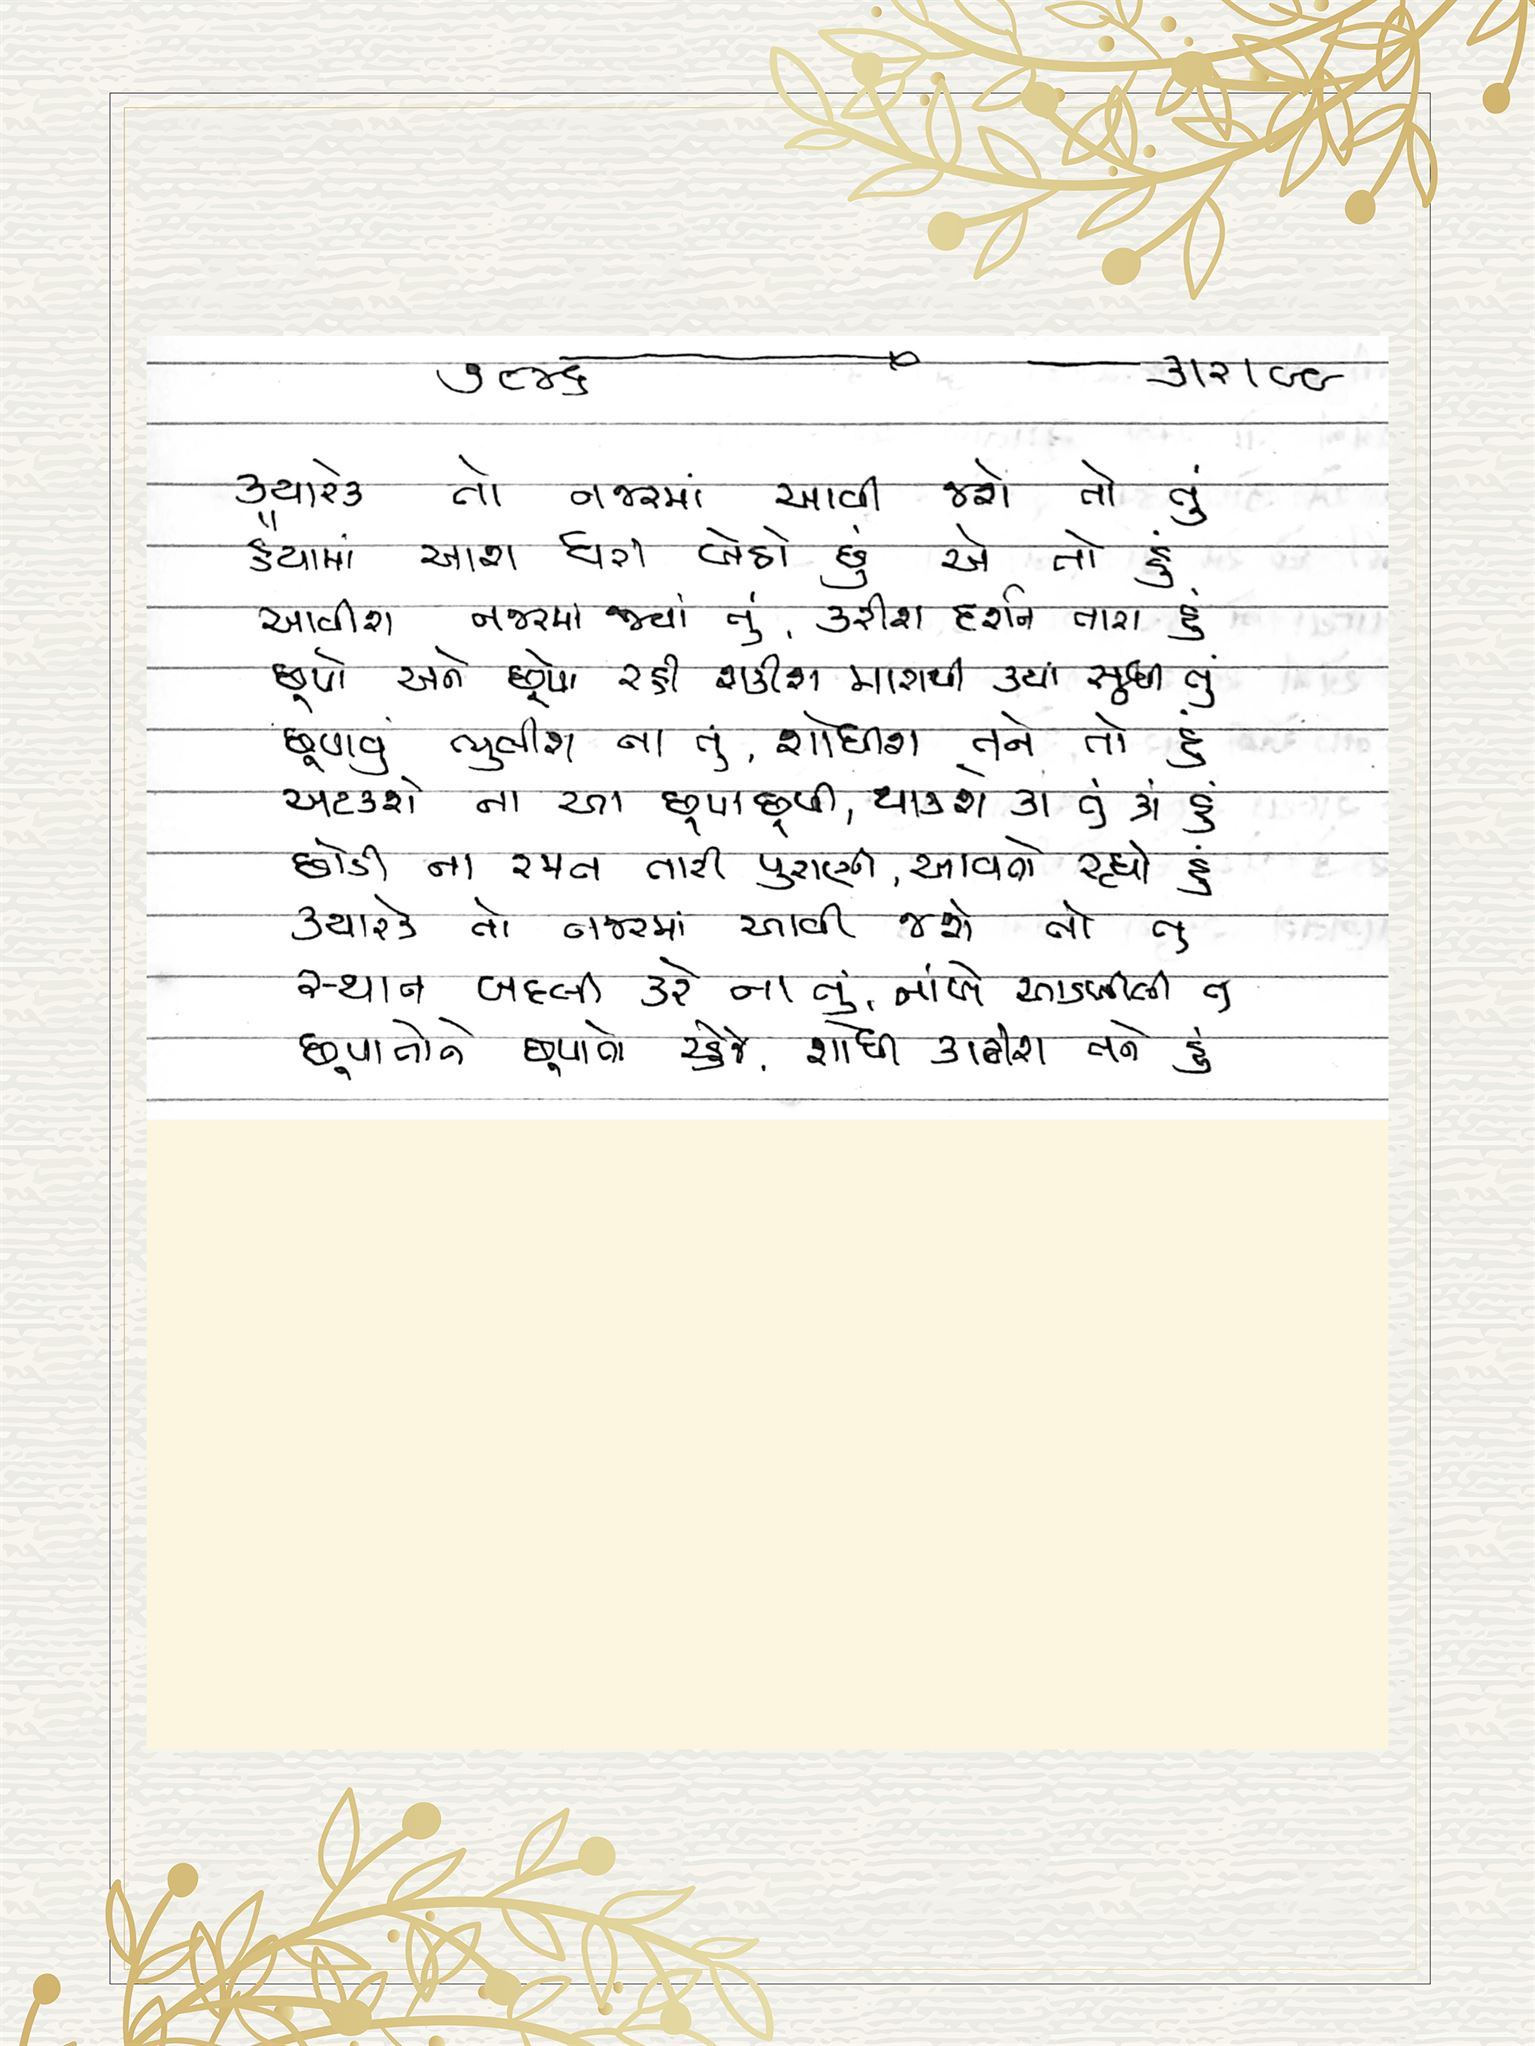 ૭૯૪૬ ૩૧૨૧૯૯
ક્યારેક તો નજરમાં આવી જશે તો તું
હૈયામાં આશ ધરી બેઠો છું એ તો હું
આવીશ નજરમાં જ્યાં તું, કરીશ દર્શન તારા હું
છૂપો અને છૂપો રહી શકીશ મારાથી ક્યાં સુધી તું
છૂપાવું ભુલીશ ના તું, શોધીશ તને તો હું
અટકશે ના આ છૂપાછૂપી, થાકશે કાં તું કાં હું
છોડી ના રમત તારી પુરાણી, આવતો રહ્યો હું
ક્યારેક તો નજરમાં આવી જશે તો તુ
સ્થાન બદલી કરે ના તું, નાંખે આડખીલી તુ
છૂપાતોને છૂપાતો રહેજે, શોધી કાઢીશ તને હું